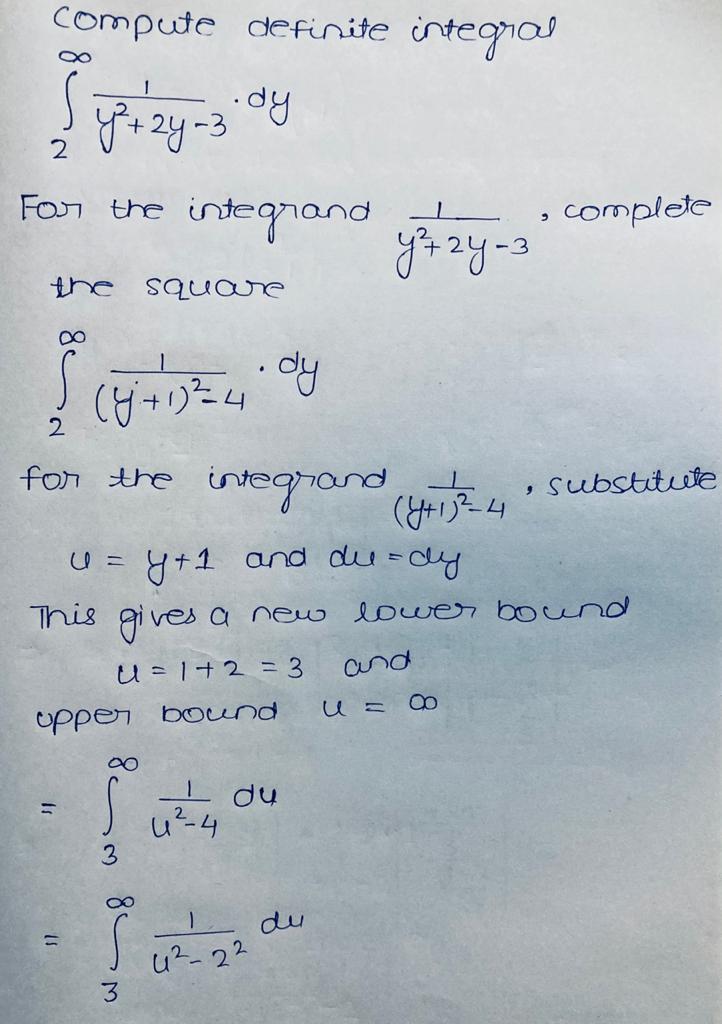 compute definite integral
∫₂^∞ 1/(y²+2y-3) · dy
For the integrand 1/(y²+2y-3), complete
the square
∫₂^∞ 1/((y+1)²-4) · dy
for the integrand 1/((y+1)²-4), substitute
u = y+1 and du = dy
This gives a new lower bound
u = 1+2 = 3 and
upper bound u = ∞
= ∫₃^∞ 1/(u²-4) du
= ∫₃^∞ 1/(u²-2²) du